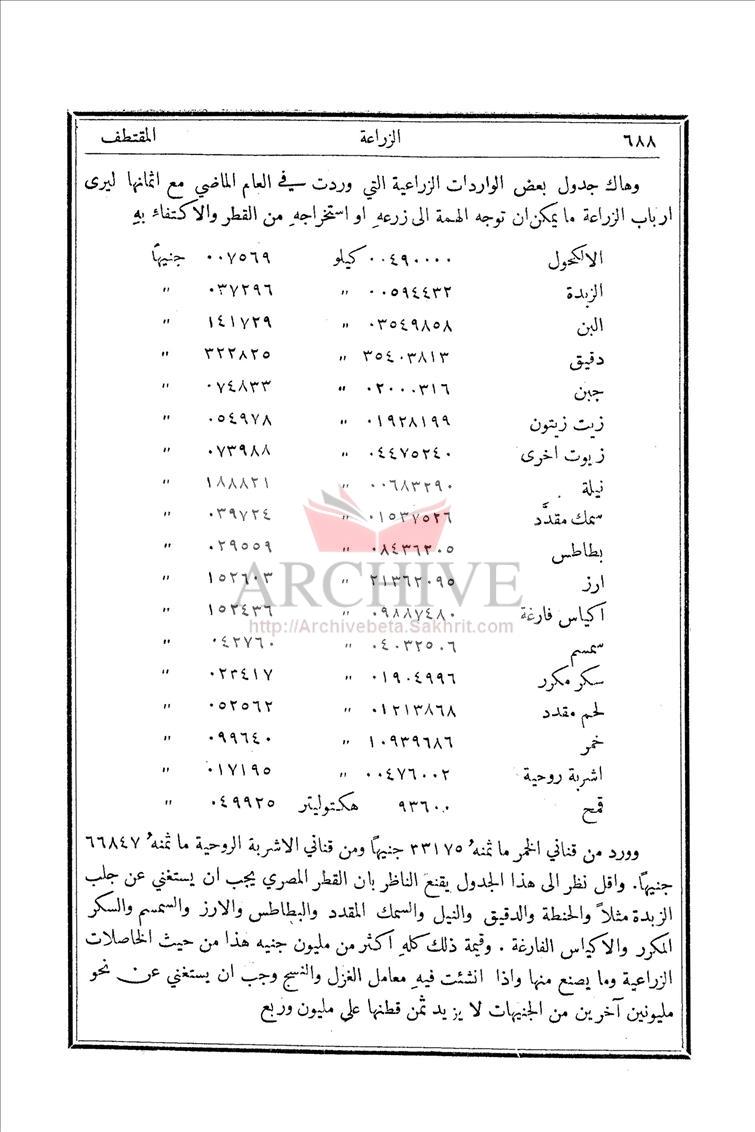 ٦٨٨ الزراعة المقتطف
وهاك جدول بعض الواردات الزراعية التي وردت في العام الماضي مع اثمانها ليرى
ارباب الزراعة ما يمكن ان توجه الهمة الى زرعهِ او استخراجهِ من القطر والاكتفاء بهِ
الالكحول ٠٠٤٩٠٠٠٠ كيلو ٠٠٧٥٦٩ جنيهًا
الزبدة ٠٠٥٩٤٤٣٢ " ٠٣٧٢٩٦ "
البن ٠٣٥٤٩٨٥٨ " ١٤١٧٢٩ "
دقيق ٣٥٤٠٣٨١٣ " ٣٢٢٨٢٥ "
جبن ٠٢٠٠٠٣١٦ " ٠٧٤٨٣٣ "
زيت زيتون ٠١٩٢٨١٩٩ " ٠٥٤٩٧٨ "
زيوت اخرى ٠٤٤٧٥٢٤٠ " ٠٧٣٩٨٨ "
نيلة ٠٠٦٨٣٢٩٠ " ١٨٨٨٢١ "
سمك مقدَّد ٠١٥٣٧٥٢٦ " ٠٣٩٧٢٤ "
بطاطس ٠٨٤٣٦٢٠٥ " ٠٢٩٥٥٩ "
ارز ٢١٣٦٢٠٩٥ " ١٥٢٦٠٣ "
ARCHIVE
اكياس فارغة ٠٩٨٨٧٤٨٠ " ١٥٢٤٣٦ "
http://Archivebeta.Sakhrit.com
سمسم ٠٤٠٣٢٥٠٦ " ٠٤٢٧٦٠ "
سكر مكرر ٠١٩٠٤٩٩٦ " ٠٢٣٤١٧ "
لحم مقدد ٠١٢١٣٨٦٨ " ٠٥٢٥٦٢ "
خمر ١٠٩٣٩٦٨٦ " ٠٩٩٦٤٠ "
اشربة روحية ٠٠٤٧٦٠٠٢ " ٠١٧١٩٥ "
قمح ٩٣٦٠٠ هكتوليتر ٠٤٩٩٢٥ "
وورد من قناني الخمر ما ثمنهُ ٣٣١٧٥ جنيهًا ومن قناني الاشربة الروحية ما ثمنهُ ٦٦٨٤٧
جنيهًا. واقل نظر الى هذا الجدول يقنع الناظر بان القطر المصري يجب ان يستغني عن جلب
الزبدة مثلاً والحنطة والدقيق والنيل والسمك المقدد والبطاطس والارز والسمسم والسكر
المكرر والاكياس الفارغة . وقيمة ذلك كلهِ اكثر من مليون جنيه هذا من حيث الحاصلات
الزراعية وما يصنع منها واذا انشئت فيهِ معامل الغزل والنسج وجب ان يستغني عن نحو
مليونين آخرين من الجنيهات لا يزيد ثمن قطنها على مليون وربع